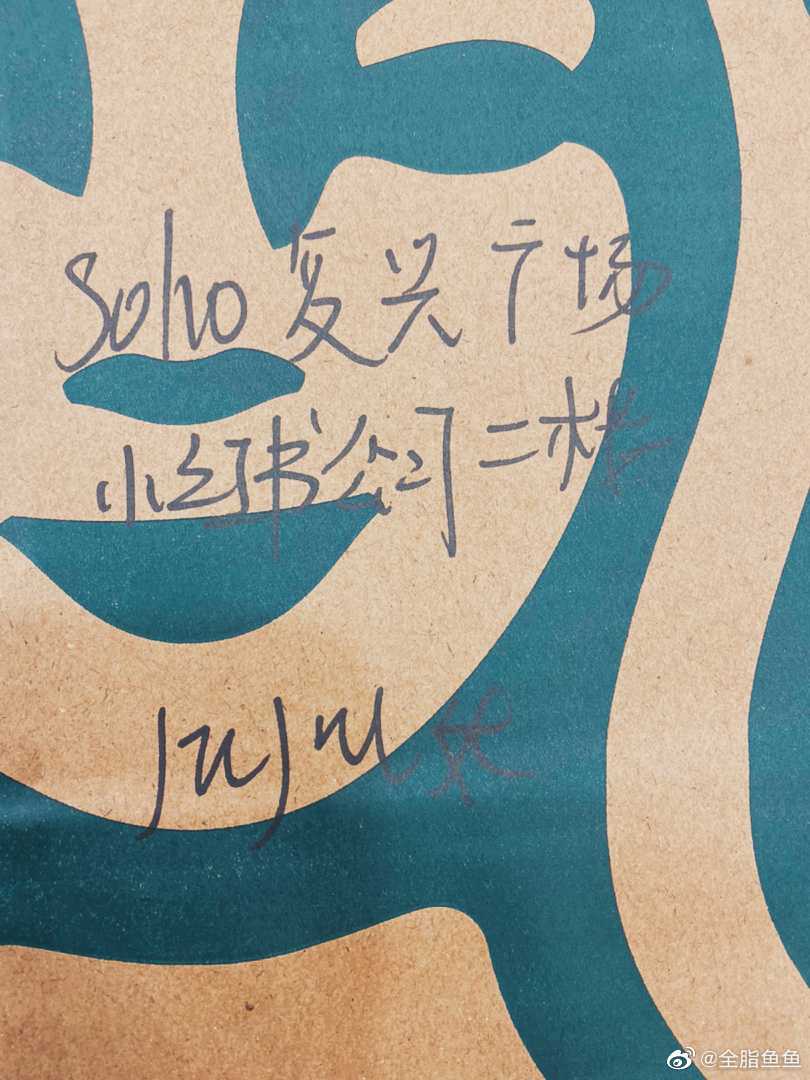 Soho 复兴广场
小红书公司二楼
JuJu 处
@全脂鱼鱼